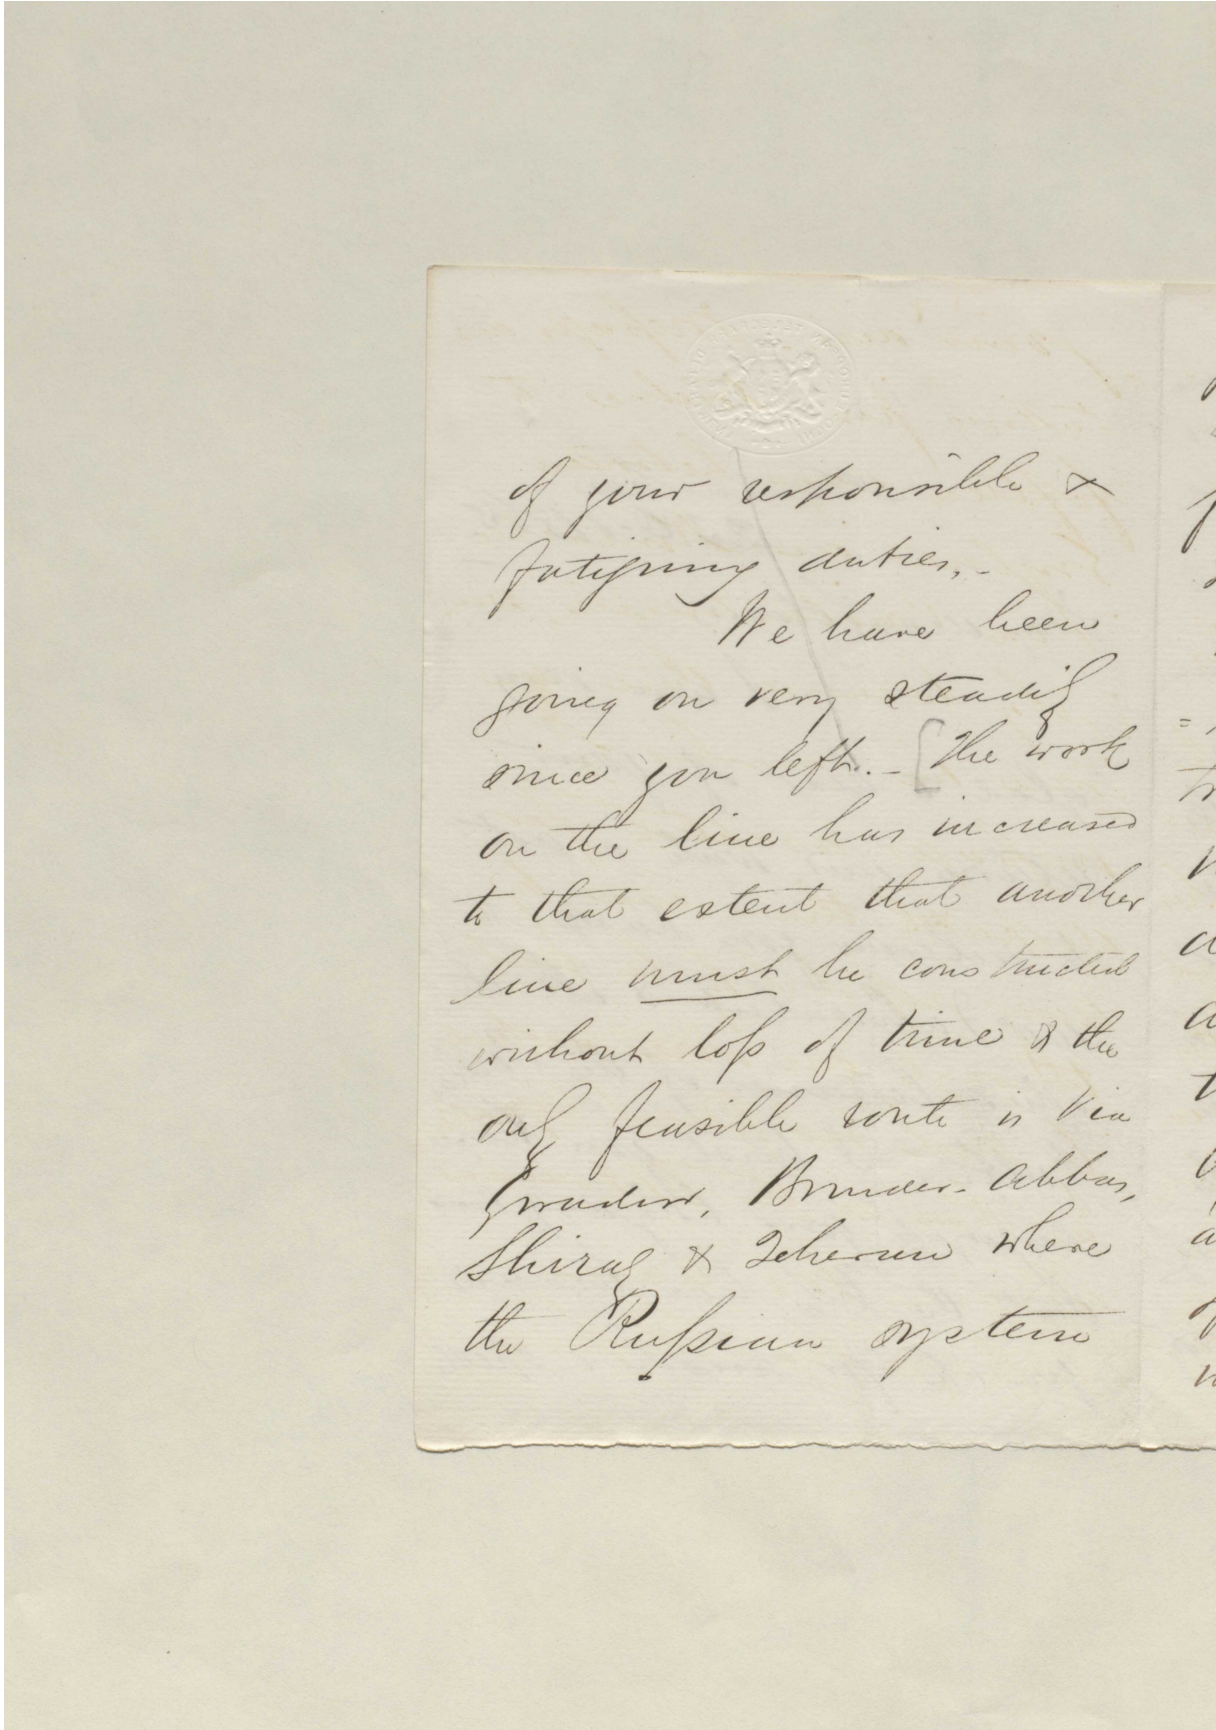 of your responsible &
fatiguing duties. -
We have been
going on very steadily
since you left. - [The work
on the line has increased
to that extent that another
line must be constructed
without loſs of time & the
only feasible route is via
Gwador, Bunder-Abbas,
Shiraz & Teheran where
the Ruſsian system